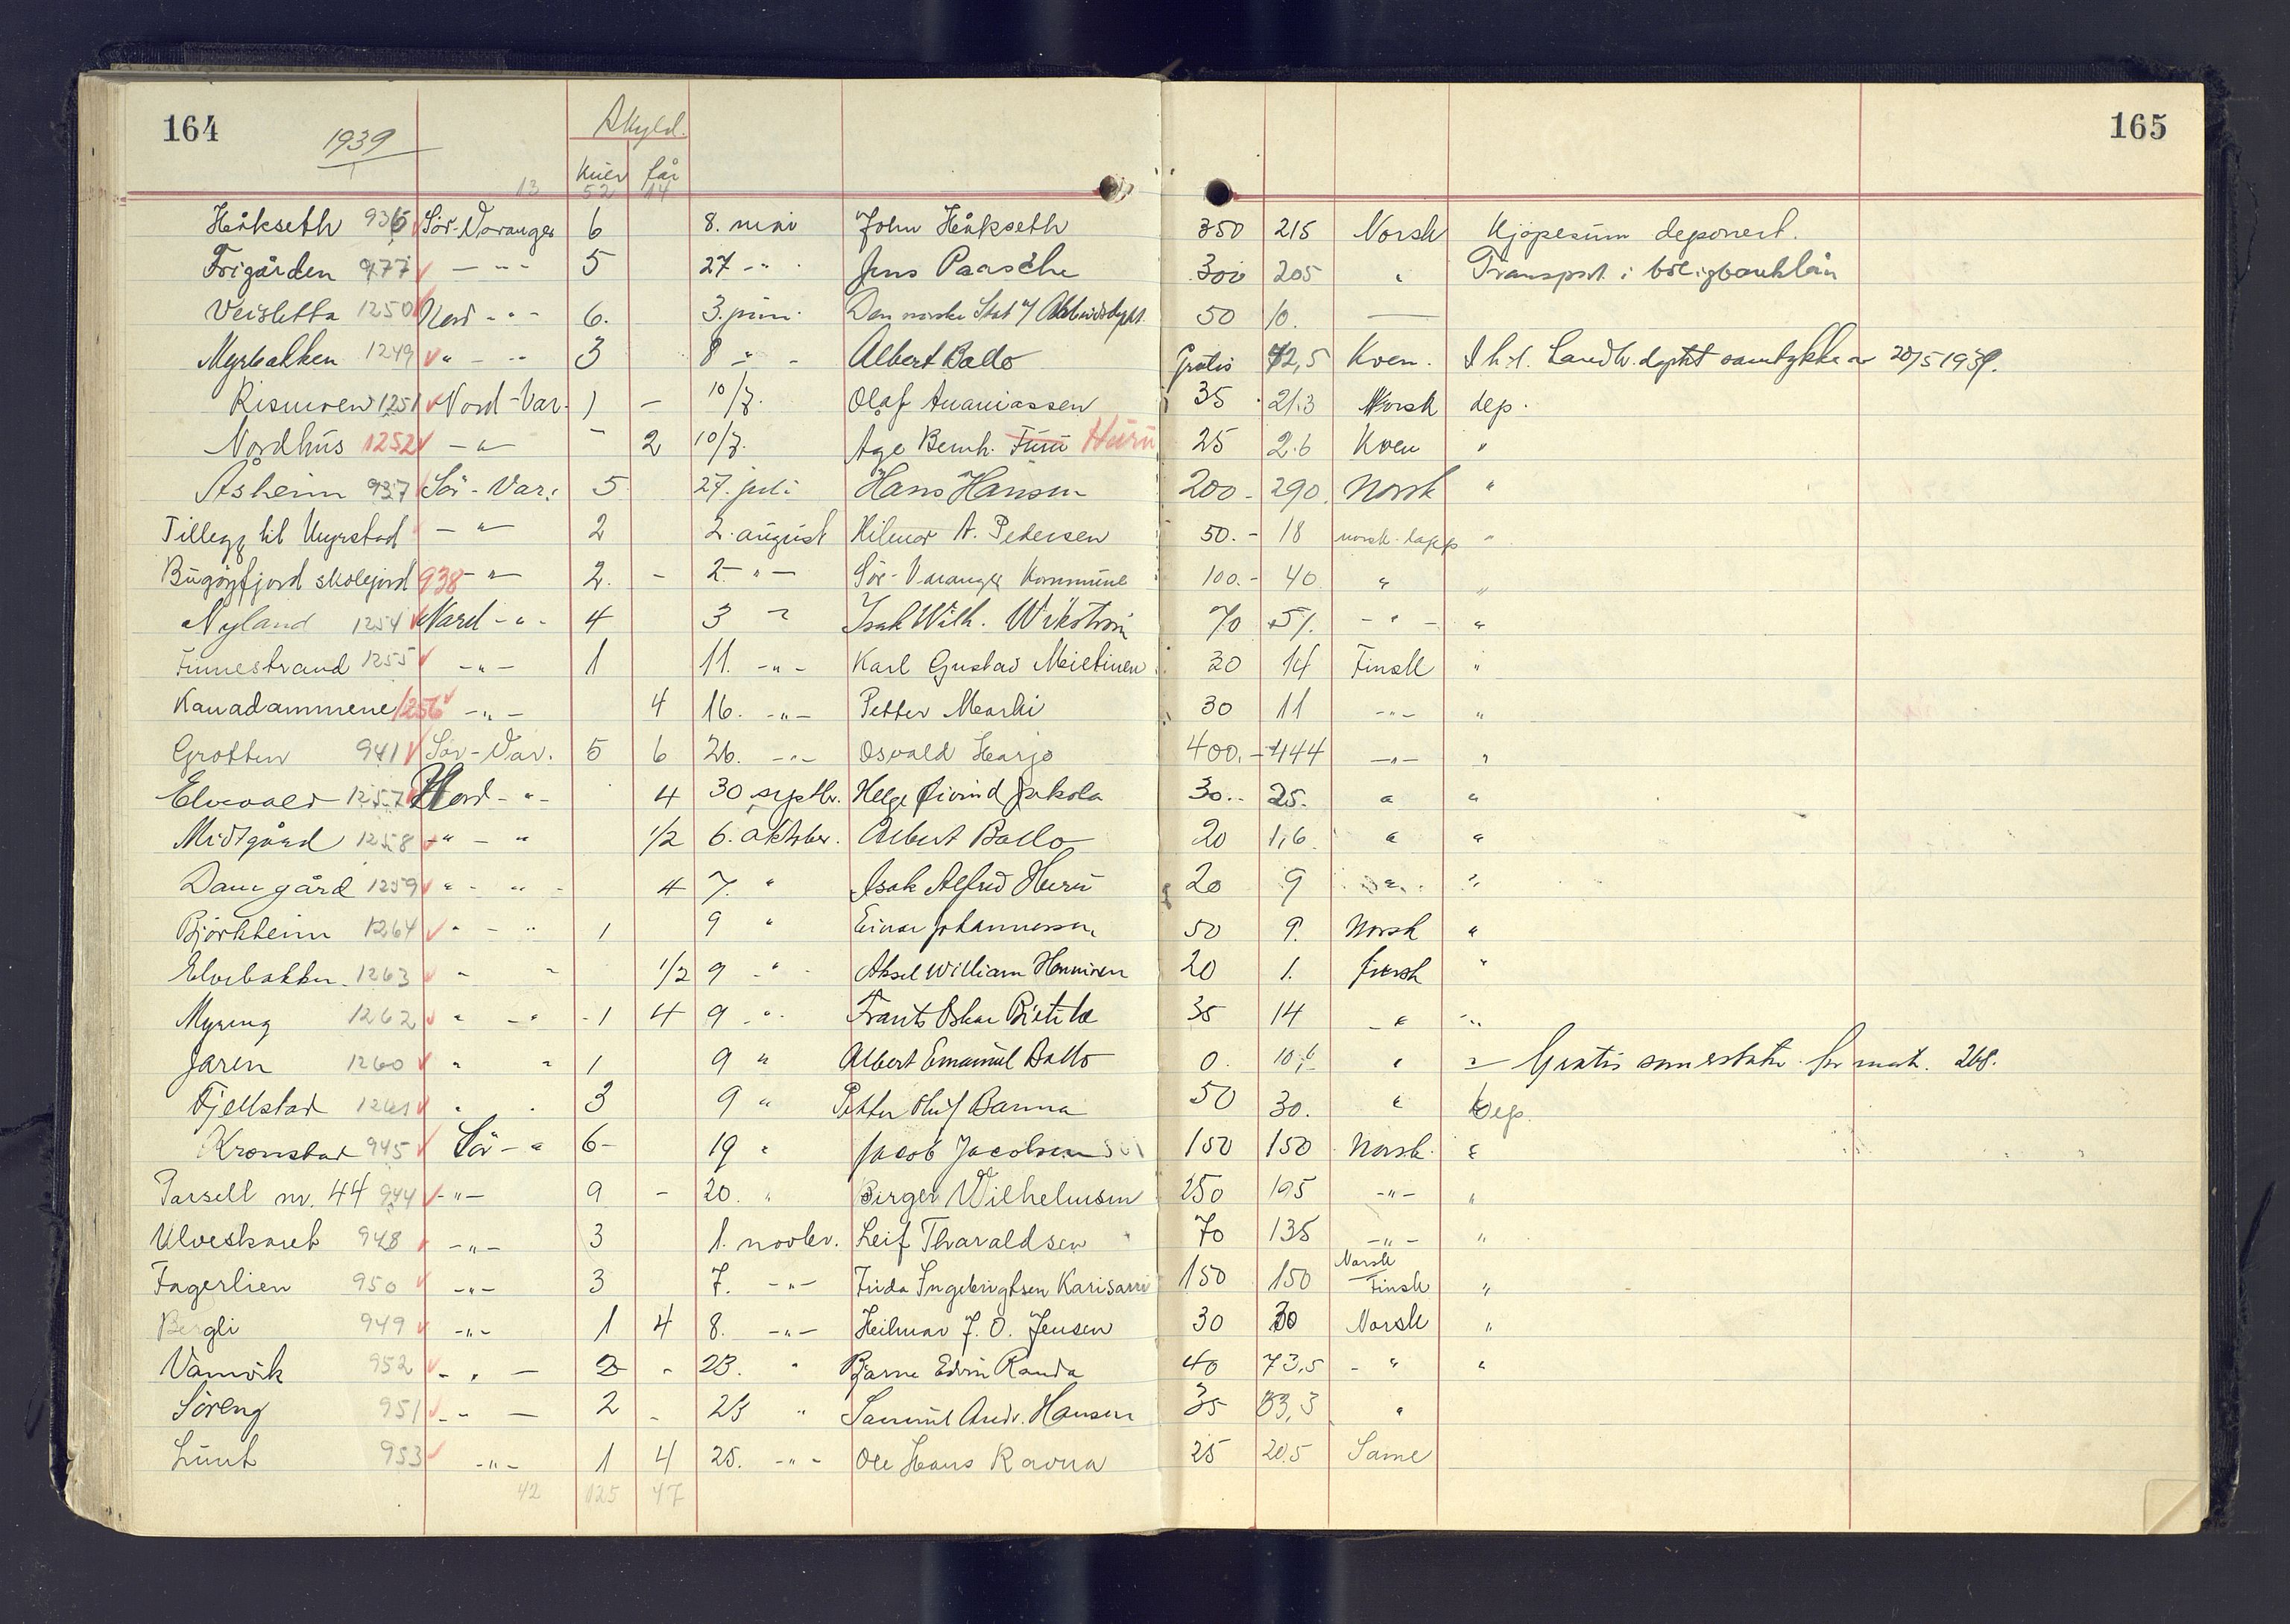 164
165
1939
Skyld.
13
Kuer
52
får
14
Håkseth 936 Sör-Varanger 6 8. mai John Håkseth 350 215 Norsk Kjøpesum deponert.
Frigården 977 — " — 5 27 - " - Jens Paasche 300 205 " Transport i boligbanklån
Veisletta 1250 Nord - " - 6. 3. juni Den norske Stat v/ Arbeidsdept. 50 10. —
Myrbakken 1249 " — " 3 8 " - Albert Ballo Gratis 72,5 Kven. I h.t. Landb. deptet samtykke av 20/5 1939.
Rismoen 1251 Nord-Var. 1 — 10/7. Olaf Ananiassen 35 21.3 Norsk dep.
Nordhus 1252 — " — - 2 10/7. Åge Bernh. Furu Huru 25 2.6 Kven "
Åsheim 937 Sör-Var. 5 27. juli Hans Hansen 200- 290 Norsk "
Tillegg til Myrstad — " — 2 2. august Hilmar A. Pedersen 50.- 18 norsk-lapp "
Bugöyfjord skolejord 938 - " — 2. - 2. - " — Sör-Varanger Kommune 100.- 40 " "
Nyland 1254 Nord - " - 4 3 " Isak Wilh. Wikström 70 51. - " - "
Finnestrand 1255 - " - 1 11. - " - Karl Gustav Mietinen 30 14 Finsk "
Kanadammene 1256 - " - 4 16. - " - Petter Marki 30 11 - " - "
Grotten 941 Sör-Var. 5 6 26. - " - Osvald Harjo 400.- 444 - " - "
Elvevold 1257 Nord - " - 4 30 septbr. Helge Øivind Jakola 30.- 25. " "
Midtgård 1258 " - " 1/2 6. oktober. Albert Ballo 20 1,6 " "
Damgård 1259 " - " - 4 7. " Isak Alfred Huru 20 9 " "
Björkheim 1264 " - " 1 9 " Einar Johannessen 50 9. Norsk "
Elvebakken 1263 " " 1/2 9 - " - Aksel William Henninen 20 1. finsk "
Myreng 1262 " - " 1 4 9 - " - Frants Oskar Pietilæ 35 14 - " "
Jaren 1260 " " 1 9 " Albert Emanuel Ballo 0. 10,6 " " - Gratis som erstatn. for matr. 268.
Fjellstad 1261 " " 3 9 " Petter Oluf Banna 50 30. " Dep.
Kronstad 945 Sör - " 6- 19 " Jacob Jacobsen 150 150 Norsk "
Parsell nr. 44 944 - " - 9 - 20. " Birger Wilhelmsen 250 195 - " - "
Ulveskaret 948 - " - 3 1. novbr. Leif Tharaldsen 70 135 - " - "
Fagerlien 950 - " - 3 7. - " - Frida Ingebrigtsen Karisarri 150 150 Norsk Finsk "
Bergli 949 - " - 1 4 8. - " - Heilmar J. O. Jensen 30 30 Norsk "
Vamvik 952 - " — 2 - 23. " Bjarne Edvin Randa 40 73,5 - " "
Söreng 951 - " — 2 - 23 " Samuel Andr. Hansen 35 83,3 "
Lunt 953 - " - 1 4 25. - " - Ole Hans Ravna 25 20.5 Same
42 125 47